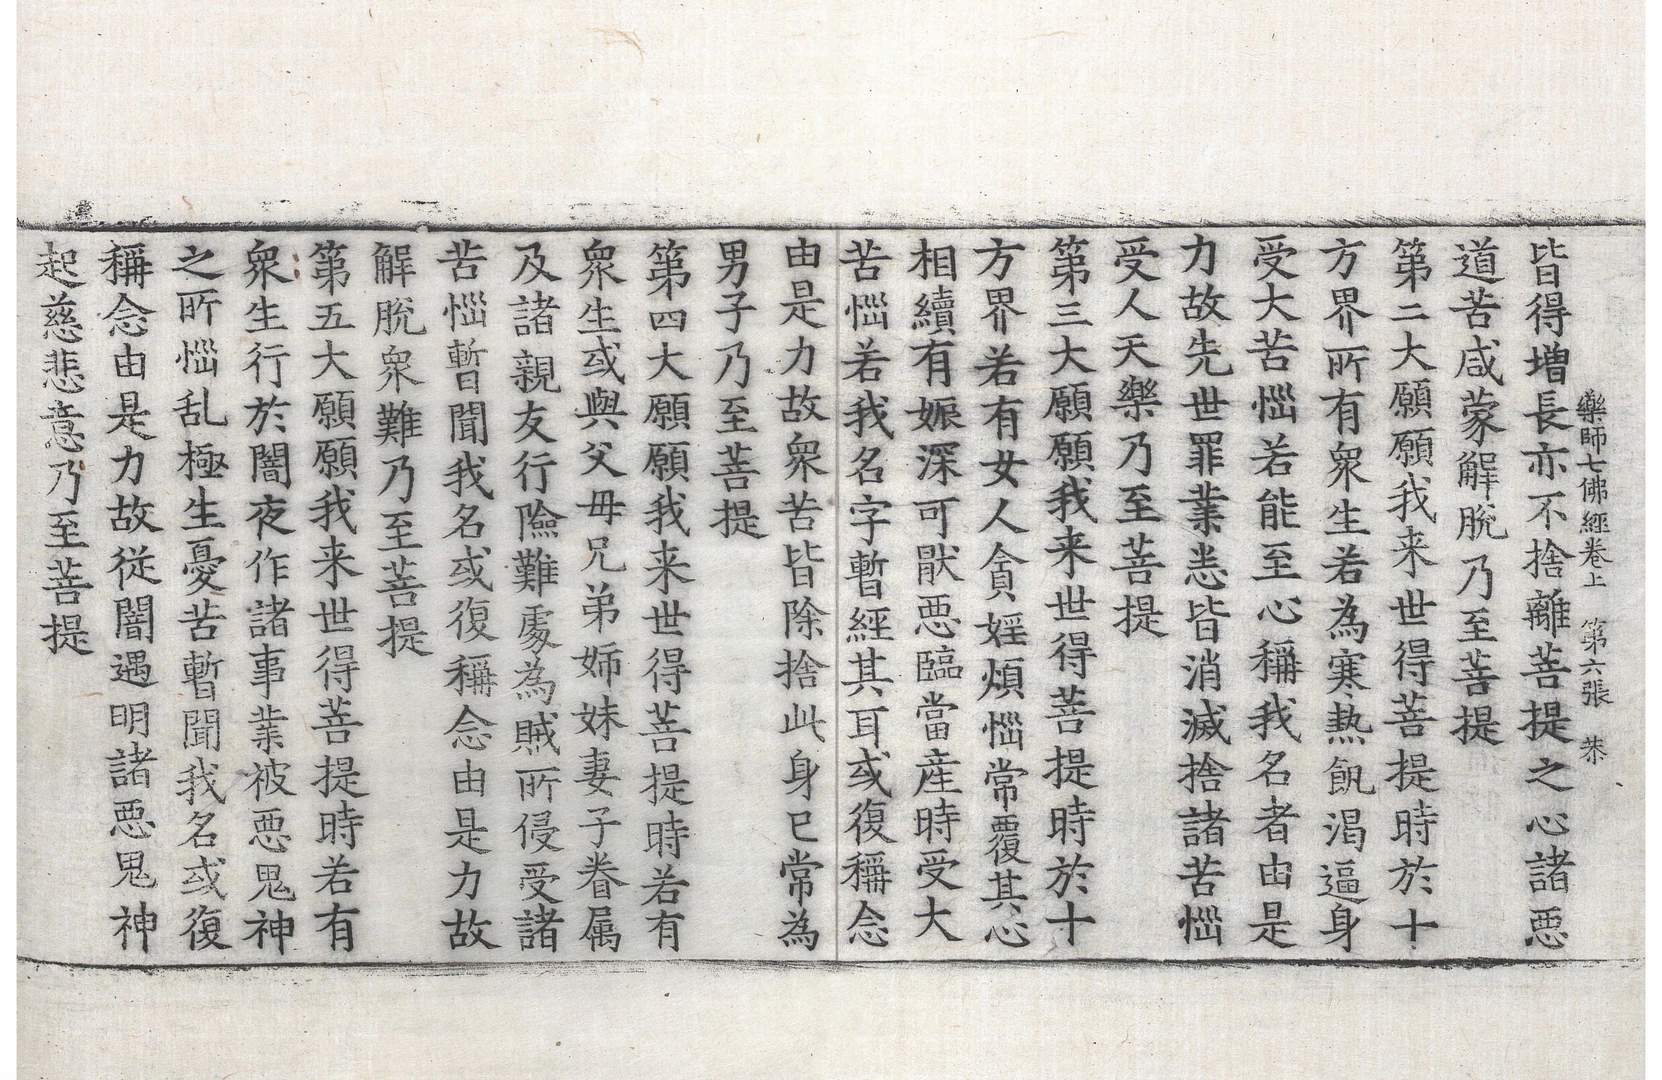 藥師七佛經卷上　第六張　茶
皆得增長亦不捨離菩提之心諸惡
道苦咸蒙解脫乃至菩提
第二大願願我来世得菩提時於十
方界所有衆生若為寒熱飢渴逼身
受大苦惱若能至心稱我名者由是
力故先世罪業悉皆消滅捨諸苦惱
受人天樂乃至菩提
第三大願願我来世得菩提時於十
方界若有女人貪婬煩惱常覆其心
相續有娠深可猒惡臨當產時受大
苦惱若我名字暫經其耳或復稱念
由是力故衆苦皆除捨此身已常為
男子乃至菩提
第四大願願我来世得菩提時若有
衆生或與父母兄弟姊妹妻子眷属
及諸親友行險難處為賊所侵受諸
苦惱暫聞我名或復稱念由是力故
解脫衆難乃至菩提
第五大願願我来世得菩提時若有
衆生行於闇夜作諸事業被惡鬼神
之所惱乱極生憂苦暫聞我名或復
稱念由是力故從闇遇明諸惡鬼神
起慈悲意乃至菩提